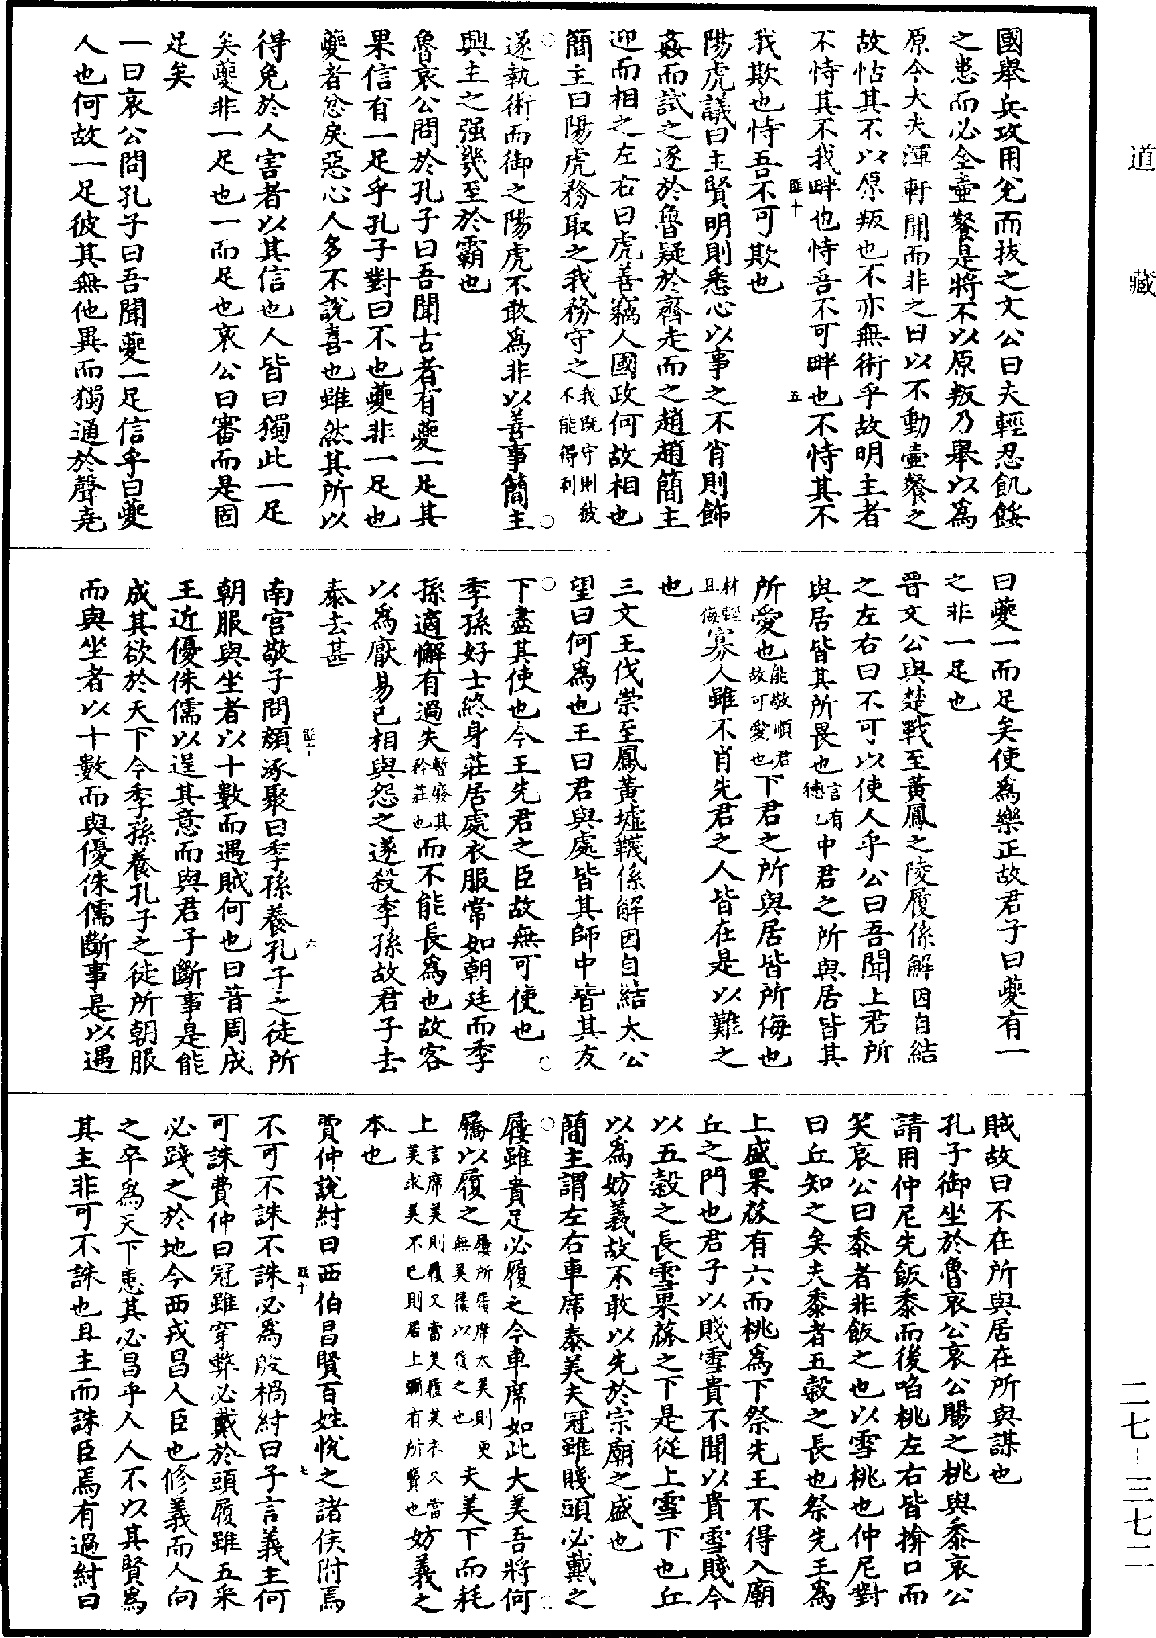 道藏
國舉兵攻用兌而拔之文公曰夫輕忍飢餒
之患而必全壷餐是將不以原叛乃舉以爲
原令大夫渾軒聞而非之曰以不動壷餐之
故怙其不以原叛也不亦無術乎故明主者
不恃其不我畔也恃吾不可畔也不恃其不
匪十 五
我欺也恃吾不可欺也
陽虎議曰主賢明則悉心以事之不肖則飾
姦而試之逐於魯疑於齊走而之趙趙簡主
迎而相之左右曰虎善竊人國政何故相也
簡主曰陽虎務取之我務守之我既守則彼不能得利
遂執術而御之陽虎不敢爲非以善事簡主
興主之强幾至於霸也
魯哀公問於孔子曰吾聞古者有夔一足其
果信有一足乎孔子對曰不也夔非一足也
夔者忿戾惡心人多不說喜也雖然其所以
得免於人害者以其信也人皆曰獨此一足
矣夔非一足也一而足也哀公曰審而是固
足矣
一曰哀公問孔子曰吾聞夔一足信乎曰夔
人也何故一足彼其無他異而獨通於聲堯
曰夔一而足矣使爲樂正故君子曰夔有一
之非一足也
晉文公與楚戰至黃鳳之陵履係解因自結
之左右曰不可以使人乎公曰吾聞上君所
與居皆其所畏也言有德也中君之所與居皆其
所愛也能敬順君故可愛也下君之所與居皆所侮也
材輕且侮寡人雖不肖先君之人皆在是以難之
也
三文王伐崇至鳳黃墟韈係解因自結太公
望曰何爲也王曰君與處皆其師中皆其友
下盡其使也今王先君之臣故無可使也
季孫好士終身莊居處衣服常如朝廷而季
孫適懈有過失暫廢其矜莊也而不能長爲也故客
以爲厭易已相與怨之遂殺季孫故君子去
泰去甚
匪十 六
南宮敬子問顏涿聚曰季孫養孔子之徒所
朝服與坐者以十數而遇賊何也曰昔周成
王近優侏儒以逞其意而與君子斷事是能
成其欲於天下今季孫養孔子之徒所朝服
而與坐者以十數而與優侏儒斷事是以遇
賊故曰不在所與居在所與謀也
孔子御坐於魯哀公哀公賜之桃與黍哀公
請用仲尼先飯黍而後啗桃左右皆揜口而
笑哀公曰黍者非飯之也以雪桃也仲尼對
曰丘知之矣夫黍者五穀之長也祭先王爲
上盛果蓏有六而桃爲下祭先王不得入廟
丘之門也君子以賤雪貴不聞以貴雪賤今
以五穀之長雪果蓏之下是從上雪下也丘
以爲妨義故不敢以先於宗廟之盛也
簡主謂左右車席泰美夫冠雖賤頭必戴之
屨雖貴足必履之今車席如此大美吾將何
屩以履之屨所履席太美則更無美屨以履之也夫美下而耗
上言席美則履又當美履美衣又當美求美不已則君上彌有所費也妨義之
本也
費仲說紂曰西伯昌賢百姓悅之諸侯附焉
不可不誅不誅必爲殷禍紂曰子言義主何
匪十 七
可誅費仲曰冠雖穿弊必戴於頭履雖五采
必踐之於地今西戎昌人臣也修義而人向
之卒爲天下患其必昌乎人人不以其賢爲
其主非可不誅也且主而誅臣焉有過紂曰
二七-三七二